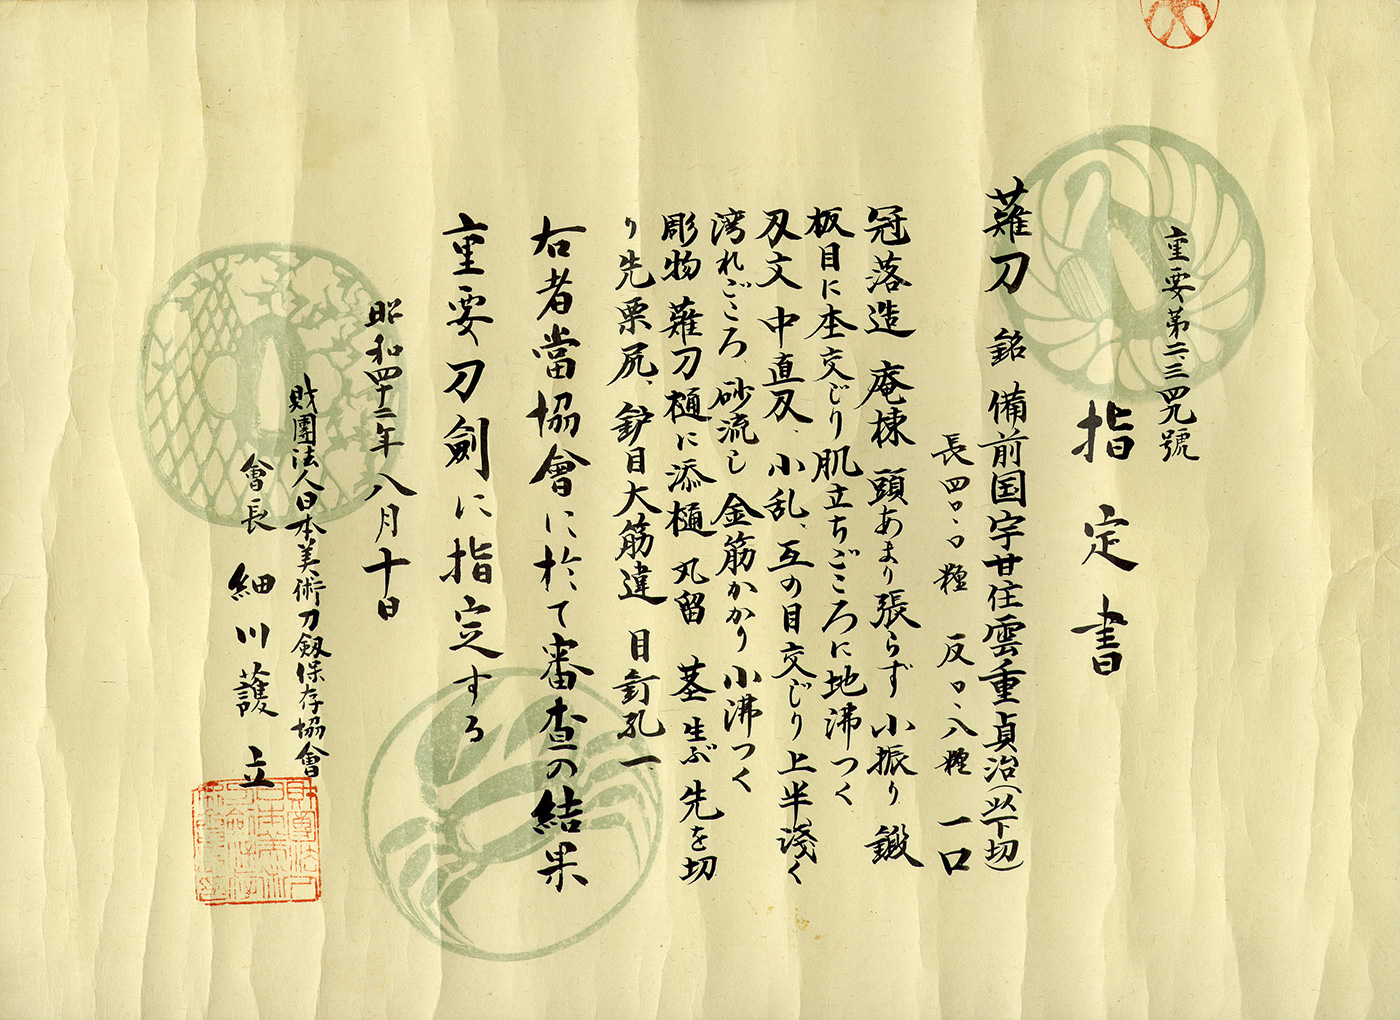 重要第二、三四九號
指定書
薙刀 銘 備前国宇甘住雲重貞治(以下切)
長 四〇、〇糎 反 〇、八糎 一口
冠落造 庵棟 頭あまり張らず 小振り 鍛
板目に杢交じり肌立ちごころに地沸つく
刃文 中直刃、小乱、互の目交じり上半淺く
湾れごころ、砂流し 金筋かかり小沸つく
彫物 薙刀樋に添樋 丸留 茎 生ぶ 先を切
り先栗尻、鈩目大筋違 目釘孔一
右者當協會に於て審査の結果
重要刀劍に指定する
昭和四十二年八月十日
財團法人日本美術刀劔保存協會
會長 細川護立